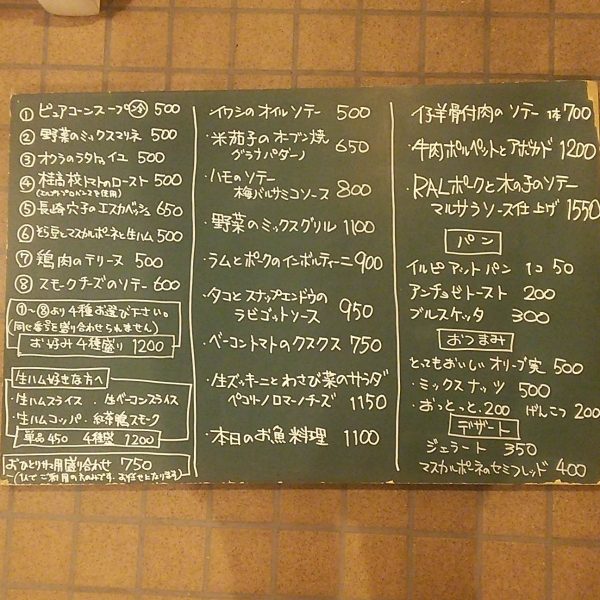 ① ピュアコーンスープ 冷 500
② 野菜のミックスマリネ 500
③ オクラのラタトゥイユ 500
④ 桂高校トマトのロースト 500
⑤ 長崎穴子のエスカベッシュ 650
⑥ そら豆とマスカルポーネと生ハム 500
⑦ 鶏肉のテリーヌ 500
⑧ スモークチーズのソテー 600
①〜⑧より4種お選び下さい。
(同じ番号を盛り合わせられません)
お好み4種盛り 1200
生ハム好きな方へ
・生ハムスライス ・生ベーコンスライス
・生ハムコッパ ・紅茶鴨スモーク
単品450 4種盛 1200
おひとりサマ用盛り合わせ 750
イワシのオイルソテー 500
・米茄子のオーブン焼 650
グラナパダーノ
・ハモのソテー 800
梅バルサミコソース
・野菜のミックスグリル 1100
・ラムとポークのインボルティーニ 900
・タコとスナップエンドウの 950
ラビゴットソース
・ベーコントマトのクスクス 750
・生ズッキーニとわさび菜のサラダ
ペコリノロマーノチーズ 1150
・本日のお魚料理 1100
仔羊骨付肉のソテー 1本 700
牛肉ポルペットとアボカド 1200
RALポークと木の子のソテー
マルサラソース仕上げ 1550
パン
イルピアットパン 1コ 50
アンチョビトースト 200
ブルスケッタ 300
おつまみ
とってもおいしいオリーブ実 500
・ミックスナッツ 500
・おっとっと 200 げんこつ 200
デザート
ジェラート 350
マスカルポーネのセミフレッド 400